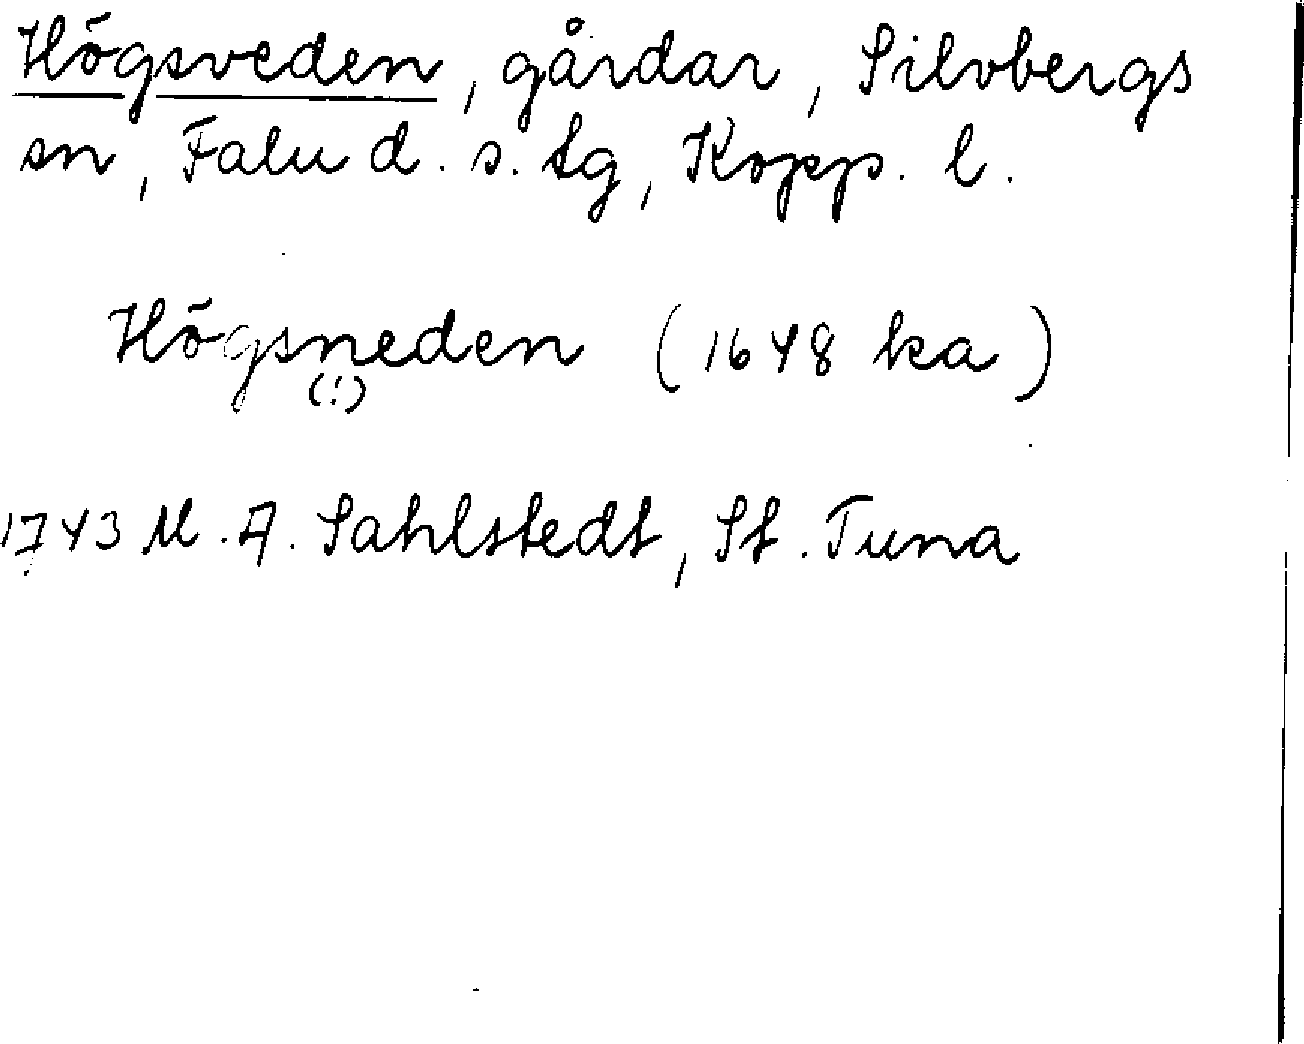 Högsveden, gårdar, Silvbergs
sn, Falu d. s. tg, Kopp. l.
Högsneden (1648 ka)
(!)
1743 M. A. Sahlstedt, St. Tuna